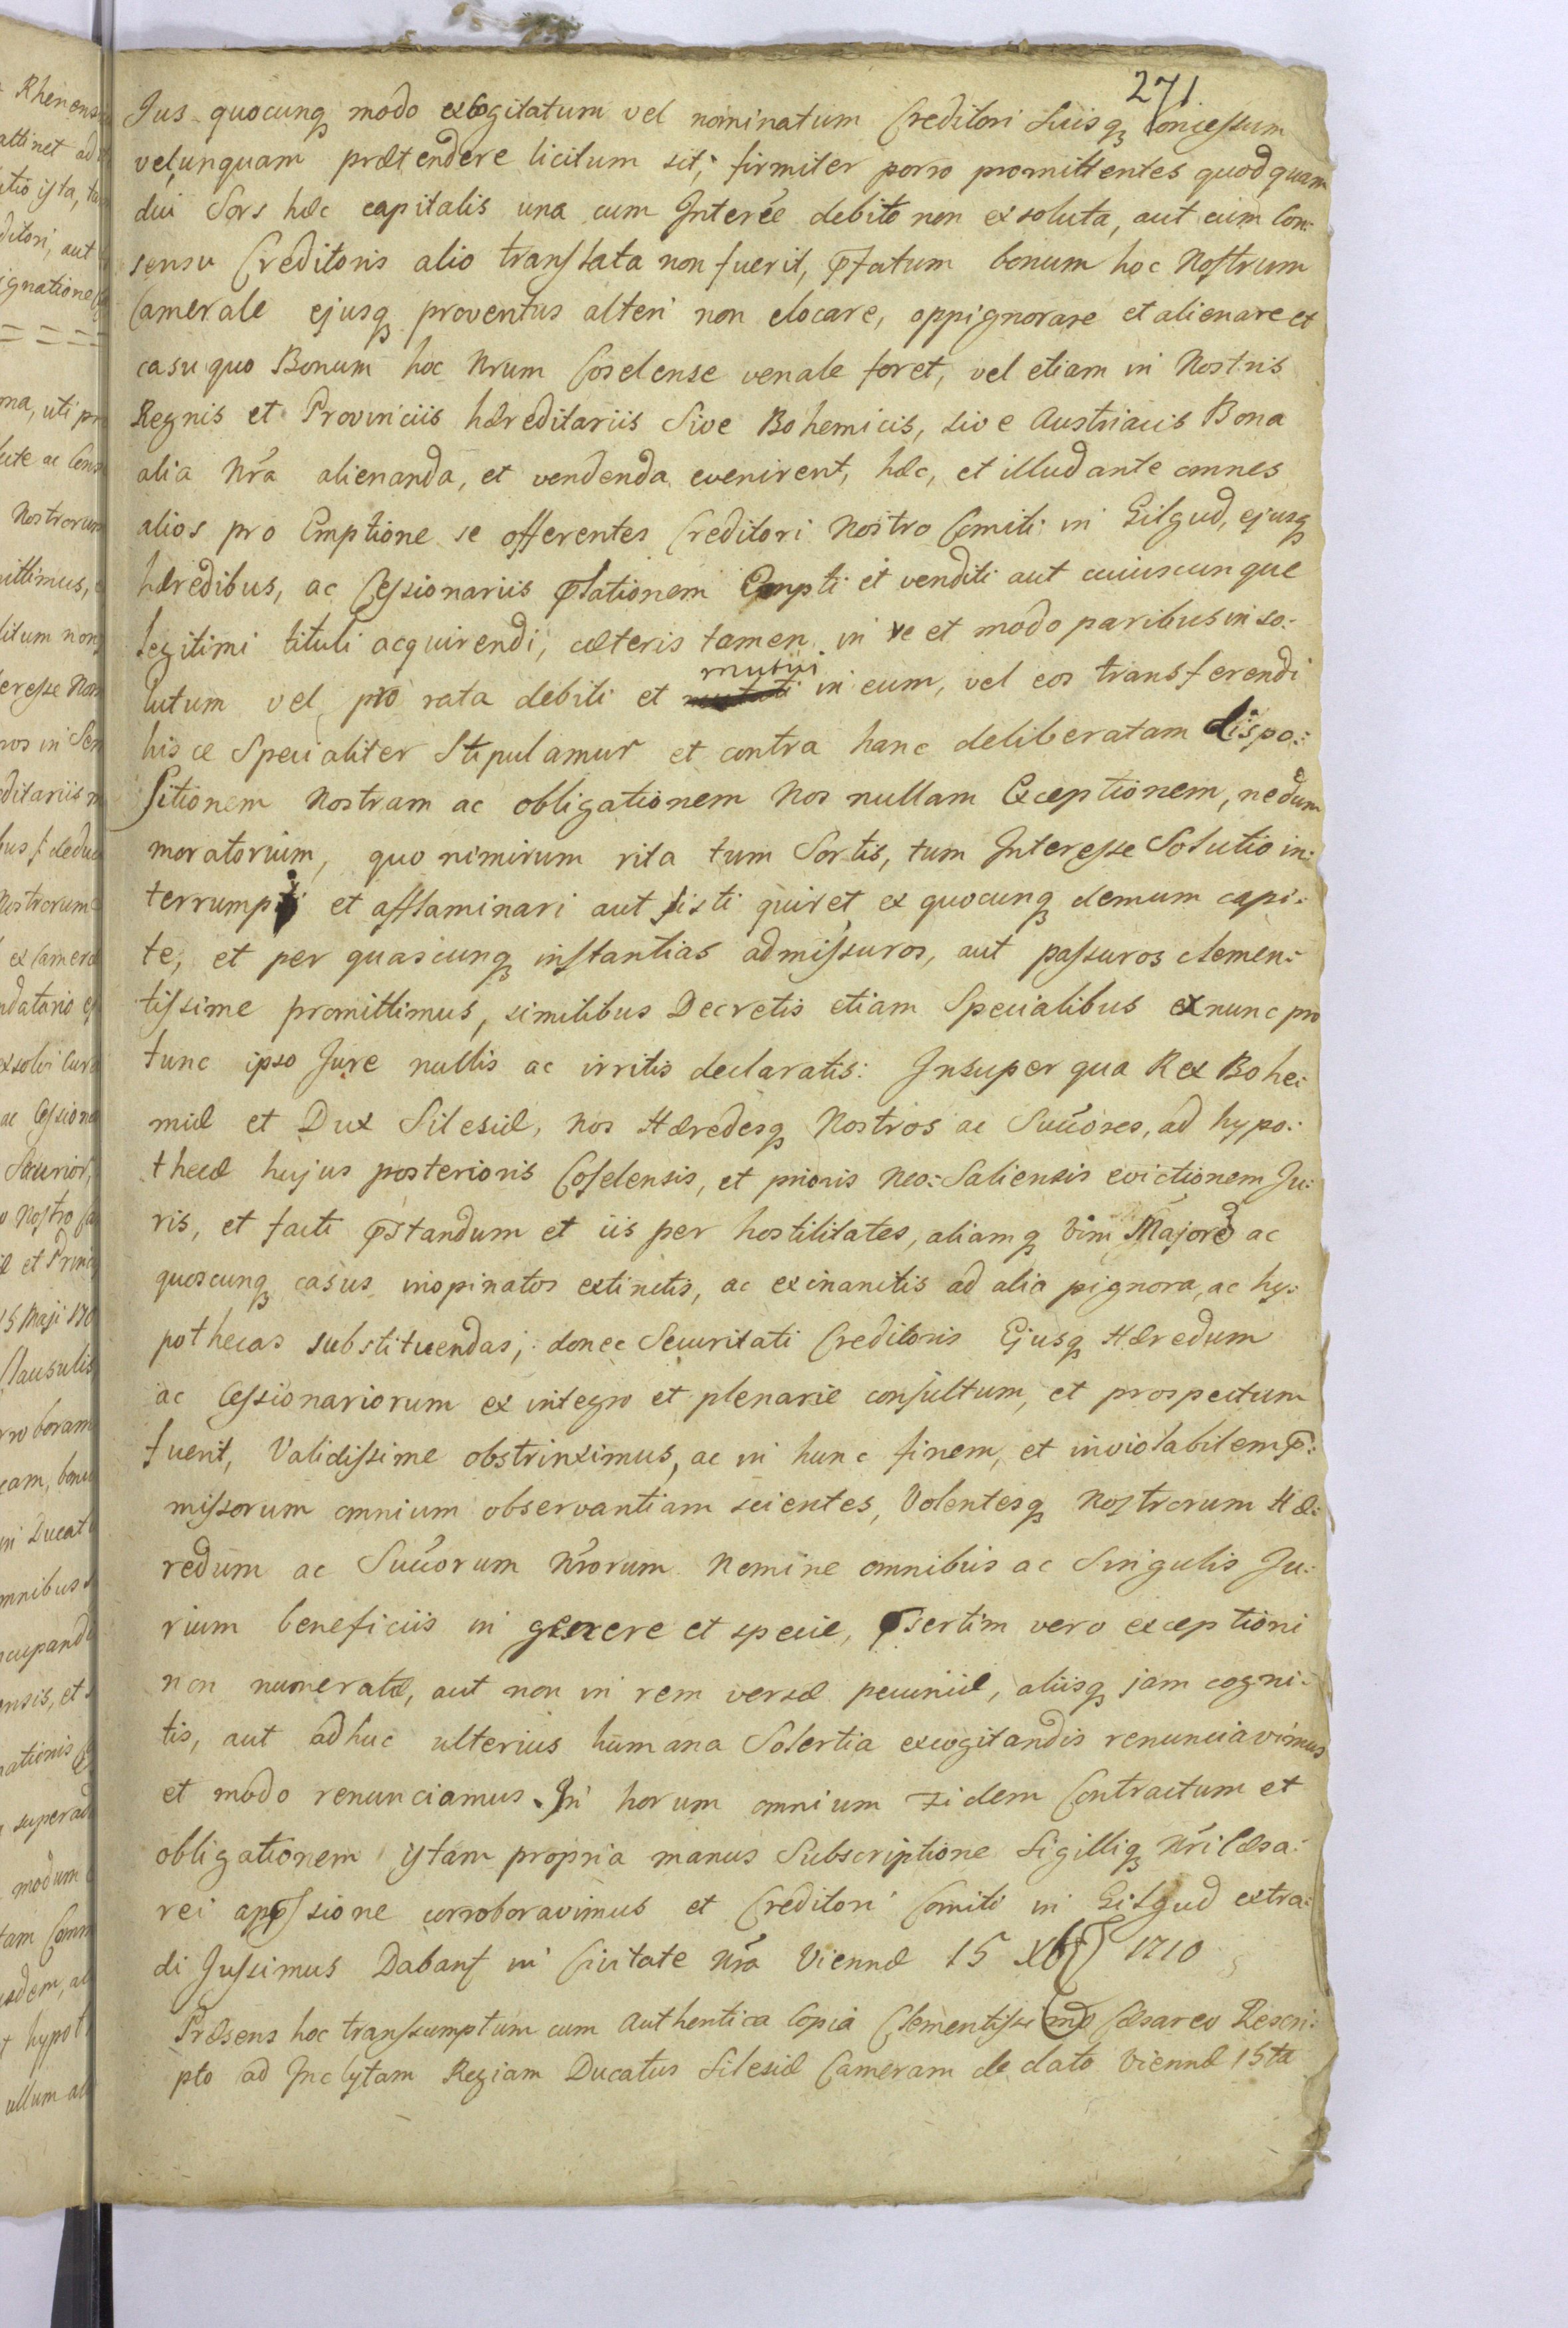 271.
Jus quocunq modo excogitatum vel nominatum Creditori Suisq Concessum
vel unquam prætendere licitum sit; firmiter porro promittentes quod quam
diu Sors hæc capitalis una cum Interée debito non exsoluta, aut cum Con:
sensu Creditoris alio translata non fuerit, pfatum bonum hoc Nostrum
Camerale ejusq proventus alteri non elocare, oppignorare et alienare et
casu quo Bonum hoc Nrum Coselense venale foret, vel etiam in Nostris
Regnis et Provinciis hæreditariis Sive Bohemicis, sive Austriacis Bona
alia Nra alienanda, et vendenda evenirent, hæc, et illud ante omnes
alios pro Emptione se offerentes Creditori Nostro Comiti in Gilgud, ejusq
hæredibus, ac Cessionariis plationem Empti et venditi aut cuiuscunque
legitimi tituli acquirendi, cæteris tamen in re et modo paribus in so:
mutui
lutum vel pro rata debiti et in eum, vel eos transferendi
hisce Specialiter Stipulamur et contra hanc deliberatam dispo:
sitionem Nostram ac obligationem Nos nullam Exceptionem, nedum
moratorium, quo nimirum rita tum Sortis, tum Interesse Solutio in:
terrumpi et afflaminari aut sisti quiret ex quocunq demum capi:
te, et per quascunq instantias admissuros, aut passuros clemen:
tissime promittimus, similibus Decretis etiam Specialibus ex nunc pro
tunc ipso Jure nullis ac irritis declaratis: Insuper qua Rex Bohe:
miæ et Dux Silesiæ, Nos Hæredesq Nostros ac Succores, ad hypo:
thecæ hujus posterioris Coselensis, et prioris Neo: Saliensis evictionem Ju:
ris, et facti pstandum et iis per hostilitates, aliamq vim Majorē ac
quoscunq casus inopinatos extinctis, ac exinanitis ad alia pignora, ac hy:
pothecas substituendas; donec Securitati Creditoris Ejusq Hæredum
ac Cessionariorum ex integro et plenarie consultum, et prospectum
fuerit, Validissime obstrinximus, ac in hunc finem, et inviolabilem p:
missorum omnium observantiam scientes, Volentesq Nostrorum Hæ:
redum ac Succorum Nrorum Nomine omnibus ac Singulis Ju:
rium beneficiis in genere et specie, psertim vero exceptioni
non numeratæ, aut non in rem versæ pecuniæ, aliisq jam cogni:
tis, aut adhuc ulterius humana Solertia excogitandis renunciavimus
et modo renunciamus. In horum omnium Fidem Contractum et
obligationem istam propria manus Subscriptione Sigilliq Nri Cæsa:
rei appssione corroboravimus et Creditori Comiti in Gilgud extra:
di Jussimus Dabant in Civitate Nra Viennæ 15 Xbris 1710
Præsens hoc transsumptum cum Authentica Copia Clementissimo Cæsareo Rescri:
pto ad Inclytam Regiam Ducatus Silesiæ Cameram de dato Viennæ 15ta